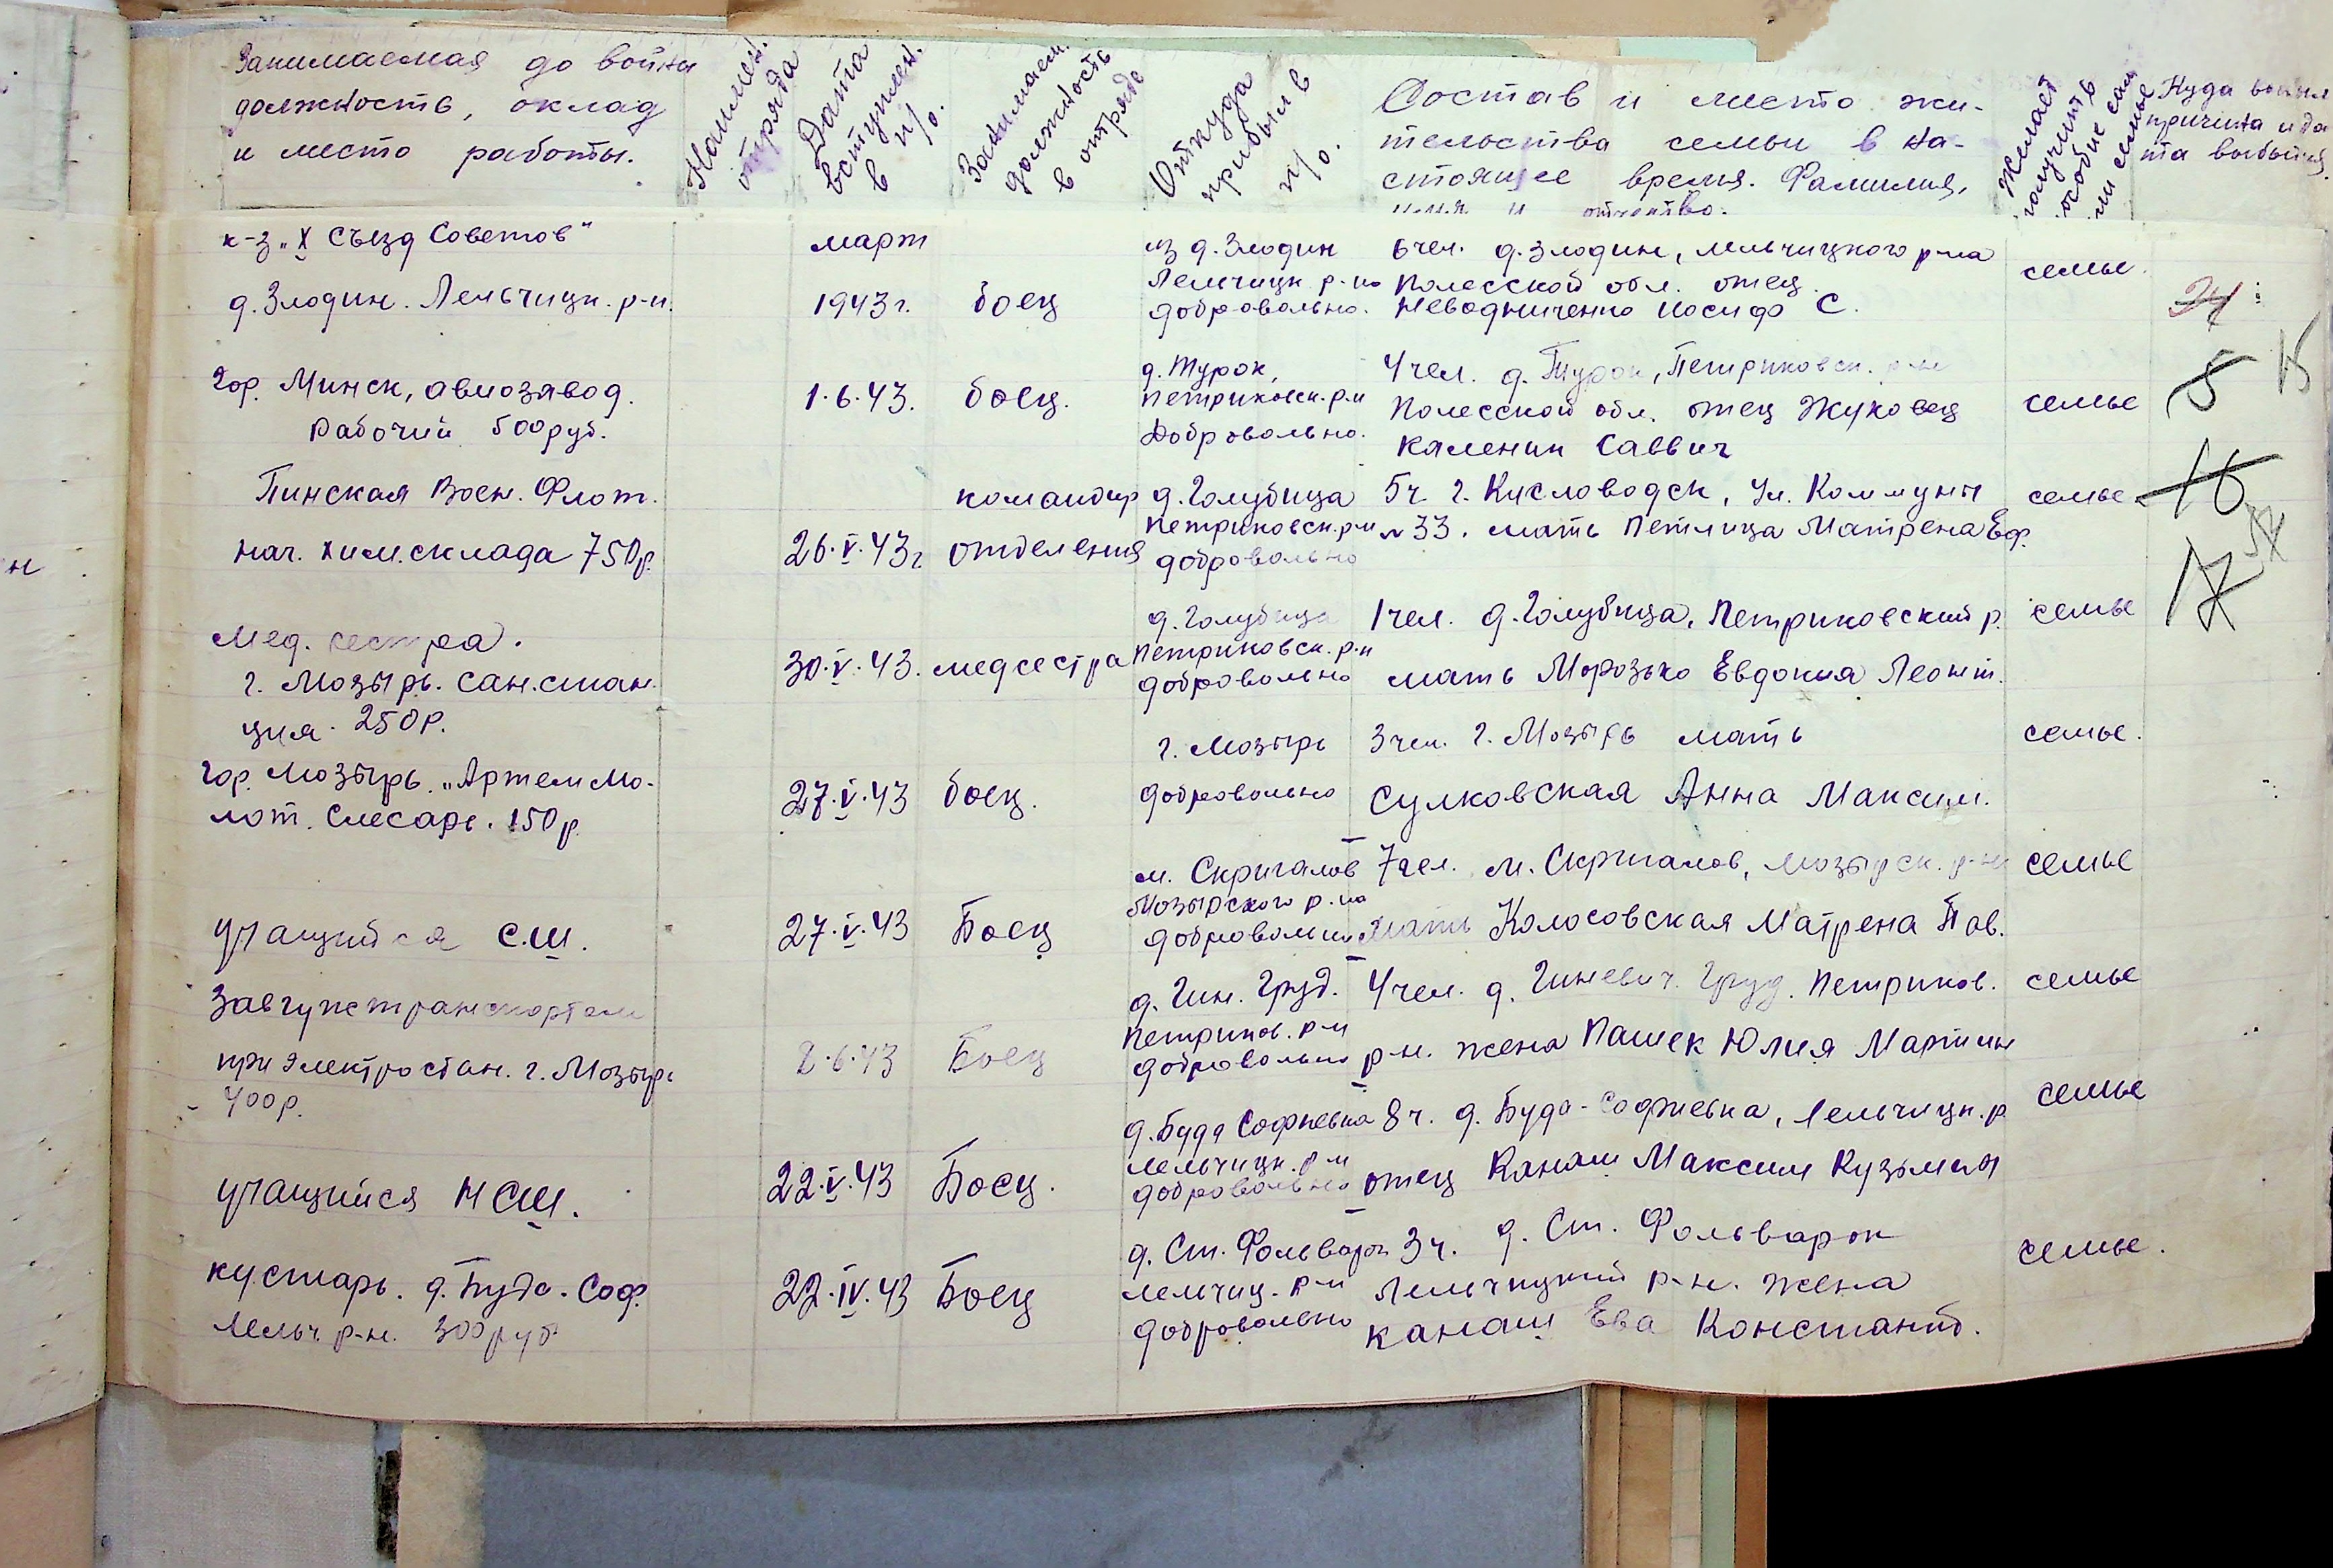 Занимаемая до войны
должность, оклад
и место работы.
Наимен.
отряда
Дата
вступлен.
в п/о.
Занимаем.
должность
в отряде
Откуда
прибыл в
п/о.
Состав и место жи-
тельства семьи в на-
стоящее время. Фамилия,
имя и отчество.
Желает
получить
особие сам
или семье
Куда выбыл
причина и да
та выбытия.
к-з „X Съезд Советов"
д. Злодин. Лельчицк. р-н.
март
1943 г.
боец
из д. Злодин
Лельчицк. р-на
добровольно.
6 чел. д. Злодин, Лельчицкого р-на
Полесской обл. отец
Неводниченко Иосиф С.
семье.
24
гор. Минск, авиозавод.
Рабочий 500 руб.
1.6.43.
боец.
д. Турок,
Петриковск. р-н
Добровольно.
4 чел. д. Турок, Петриковск. р-н
Полесской обл. отец Жуковец
Каленик Саввич
семье
5 15
Пинская Воен. Флот.
нач. хим. склада 750 р.
26.V.43 г.
командир
отделения
д. Голубица
Петриковск. р-н
добровольно
5 ч. г. Кисловодск, ул. Коммуны
№ 33. мать Петлица Матрена Еф.
семье
16
Мед. сестра.
г. Мозырь. Сан. стан.
ция. 250 р.
30.V.43.
медсестра
д. Голубица
Петриковск. р-н
добровольно
1 чел. д. Голубица, Петриковский р.
мать Морозько Евдокия Леонт.
семье
17
гор. Мозырь. „Артель Мо-
лот. Слесарь. 150 р.
27.V.43
боец.
г. Мозырь
добровольно
3 чел. г. Мозырь мать
Сулковская Анна Максим.
семье.
учащийся С.Ш.
27.V.43
Боец
м. Скригалов
Мозырского р-на
добровольно
7 чел. м. Скригалов, Мозырск. р-н
мать Колосовская Матрена Пав.
семье
Завгужтранспортом
при Электростан. г. Мозырь
- 400 р.
2.6.43
Боец
д. Гин. Груд.
Петриков. р-н
добровольно
4 чел. д. Гиневич. Груд. Петриков.
р-н. жена Пашек Юлия Мартын
семье
учащийся НСШ.
22.V.43
Боец.
д. Буда Софиевка
Лельчицк. р-н
добровольно
8 ч. д. Буда-Софиевка, Лельчицк. р.
отец Канаш Максим Кузьмич
семье
кустарь. д. Буда-Соф.
Лельч. р-н. 300 руб.
22.IV.43
Боец
д. Ст. Фольварок
Лельчиц. р-н
добровольно
3 ч. д. Ст. Фольварок
Лельчицкий р-н. жена
Канаш Ева Констант.
семье.